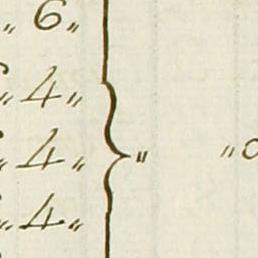 „ 6 „
„ 4 „
„ 4 „ } „ „ 0
„ 4 „